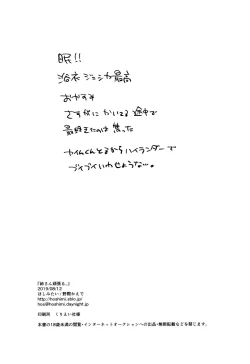 眠!!
浴衣ジェシカ最高
おやすみ
さすがにかいてる途中で
最終きたのは焦った
カイムくんとるからハイランダーで
ブイブイいわせような…。
『姉さん頑張る。』
2019/08/12
ほしみたい/野間かえで
http://hoshimi.sblo.jp/
hos@hoshimi.daynight.jp
印刷所 くりえい社様
本書の18歳未満の閲覧・インターネットオークションへの出品・無断転載などを禁じます。